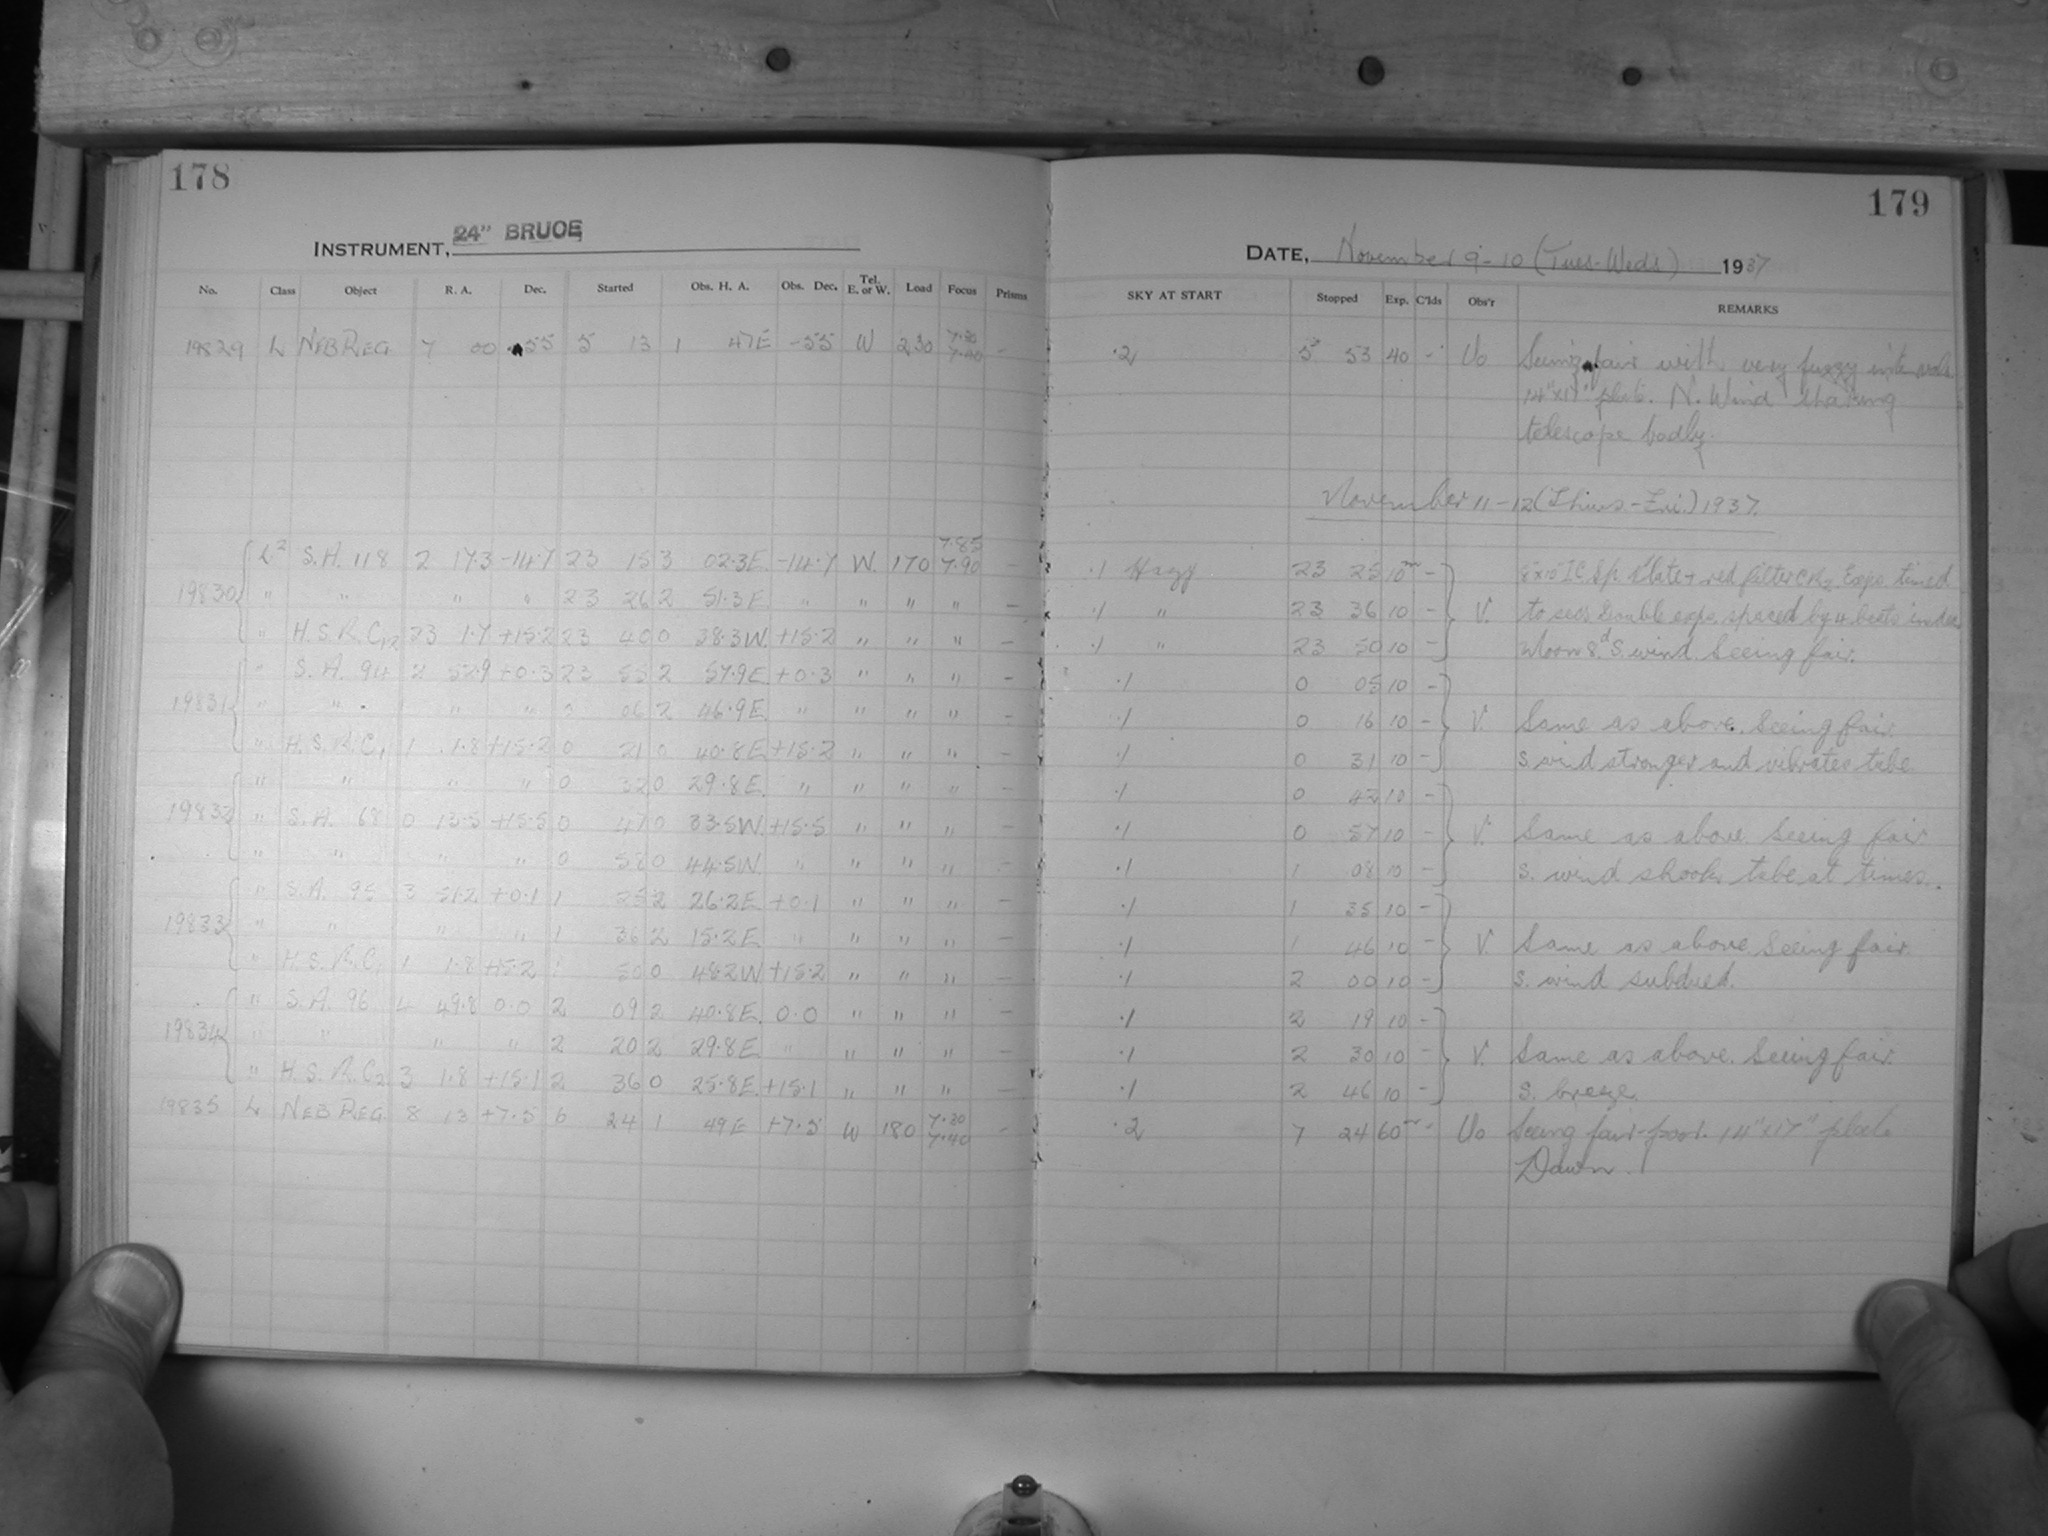 178
INSTRUMENT, 24" BRUCE
No. Class Object R. A. Dec. Started Obs. H. A. Obs. Dec. Tel. E. or W. Load Focus Prisms
19829 L NEB REG. 7 00 -55 5 13 1 47E -55 W 230 7.30 7.40 -
19830 L² S.A. 118 2 17.3 -14.7 23 15 3 02.3E -14.7 W. 170 7.85 7.90 -
" " " " 23 26 2 51.3E " " " " -
" H.S.R.C12 23 1.7 +15.2 23 40 0 38.3W +15.2 " " " -
19831 " S.A. 94 2 52.9 +0.3 23 55 2 57.9E +0.3 " " " -
" " " " 0 06 2 46.9E " " " " -
" H.S.R.C1 1 1.8 +15.2 0 21 0 40.8E +15.2 " " " -
19832 " " " " 0 32 0 29.8E " " " " -
" S.A. 68 0 13.5 +15.5 0 47 0 33.5W +15.5 " " " -
" " " " 0 58 0 44.5W " " " " -
19833 " S.A. 95 3 51.2 +0.1 1 25 2 26.2E +0.1 " " " -
" " " " 1 36 2 15.2E " " " " -
" H.S.R.C1 1 1.8 +15.2 1 50 0 48.2W +15.2 " " " -
19834 " S.A. 96 4 49.8 0.0 2 09 2 40.8E 0.0 " " " -
" " " " 2 20 2 29.8E " " " " -
" H.S.R.C2 3 1.8 +15.1 2 36 0 25.8E +15.1 " " " -
19835 L NEB REG. 8 13 +7.5 6 24 1 49E +7.5 W 180 7.30 7.40 -
179
DATE, November 9-10 (Tues-Weds) 1937
SKY AT START Stopped Exp. C'lds Obs'r REMARKS
.2 5 53 40 - Uo Seeing fair with very fuzzy intervals
14"x17" plate. N. Wind shaking
telescope badly.
November 11-12 (Thurs-Fri.) 1937.
.1 Hazy 23 25 10m - 8x10 I C Sp. Plate + red filter Exps timed
.1 " 23 36 10 - V. to secs Double exps. spaced by 4 beats in dec
.1 " 23 50 10 - Moon 8d. S. wind. Seeing fair.
.1 0 05 10 -
.1 0 16 10 - V. Same as above. Seeing fair.
.1 0 31 10 - S. wind stronger and vibrates tube.
.1 0 42 10 -
.1 0 57 10 - V. Same as above. Seeing fair.
.1 1 08 10 - S. wind shook tube at times.
.1 1 35 10 -
.1 1 46 10 - V. Same as above. Seeing fair.
.1 2 00 10 - S. wind subdued.
.1 2 19 10 -
.1 2 30 10 - V. Same as above. Seeing fair.
.1 2 46 10 - S. breeze.
.2 7 24 60m - Uo Seeing fair-poor. 14"x17" plate
Dawn.